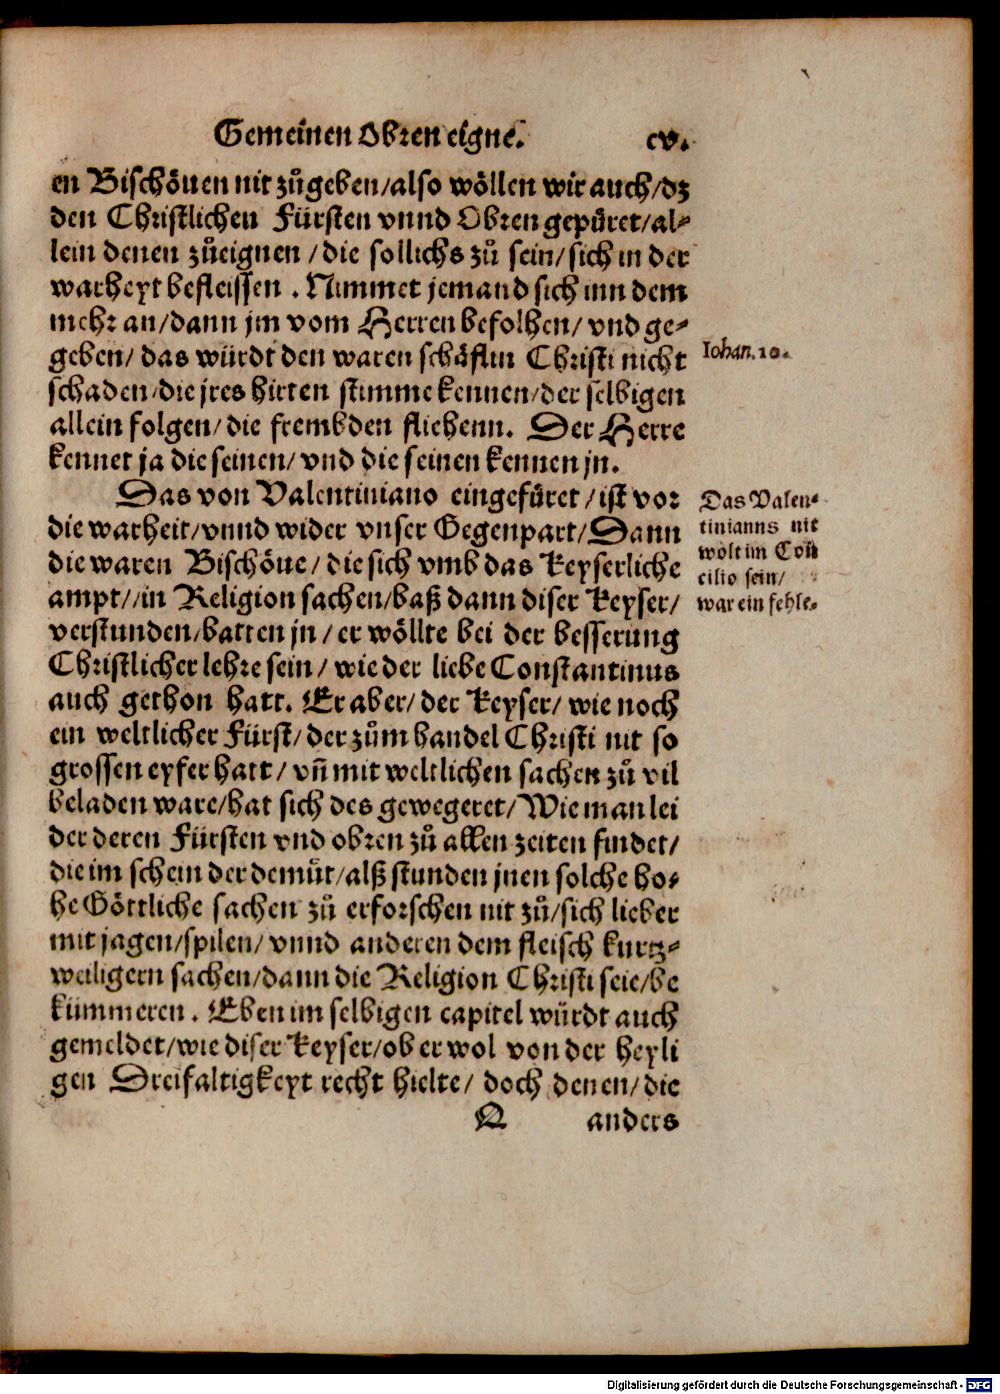 Gemeinen Obren eigne. cv.
en Bischöuen nit zůgeben/also wöllen wir auch/dz
den Christlichen Fürsten vnnd Obren gepüret/al-
lein denen zůeignen /die sollichs zů sein/sich in der
warheyt befleissen . Nimmet jemand sich inn dem
mehr an/dann jm vom Herren befolhen/ vnd ge-
geben/ das würdt den waren schäflin Christi nicht
schaden/die jres hirten stimme kennen/der selbigen
allein folgen/die frembden fliehenn. Der Herre
kennet ja die seinen/ vnd die seinen kennen jn.
Iohan. 10.
Das von Valentiniano eingefüret /ist vor
die warheit/vnnd wider vnser Gegenpart/Dann
die waren Bischöue/ die sich vmb das Keyserliche
ampt//in Religion sachen/baß dann diser Keyser/
verstunden/batten jn / er wöllte bei der besserung
Christlicher lehre sein/ wie der liebe Constantinus
auch gethon hatt. Er aber/ der Keyser/ wie noch
ein weltlicher Fürst/der zům handel Christi nit so
grossen eyfer hatt/ vñ mit weltlichen sachen zů vil
beladen ware/hat sich des gewegeret/Wie man lei
der deren Fürsten vnd obren zů allen zeiten findet/
die im schein der demůt/alß stunden jnen solche ho-
he Göttliche sachen zů erforschen nit zů/sich lieber
mit jagen/spilen/ vnnd anderen dem fleisch kurtz-
weiligern sachen/dann die Religion Christi seie/be
kümmeren . Eben im selbigen capitel würdt auch
gemeldet/wie diser Keyser/ob er wol von der heyli
gen Dreifaltigkeyt recht hielte/ doch denen/die
Das Valen-
tinianns nit
wolt im Con
cilio sein/
war ein fehle.
anders
Digitalisierung gefördert durch die Deutsche Forschungsgemeinschaft - DFG